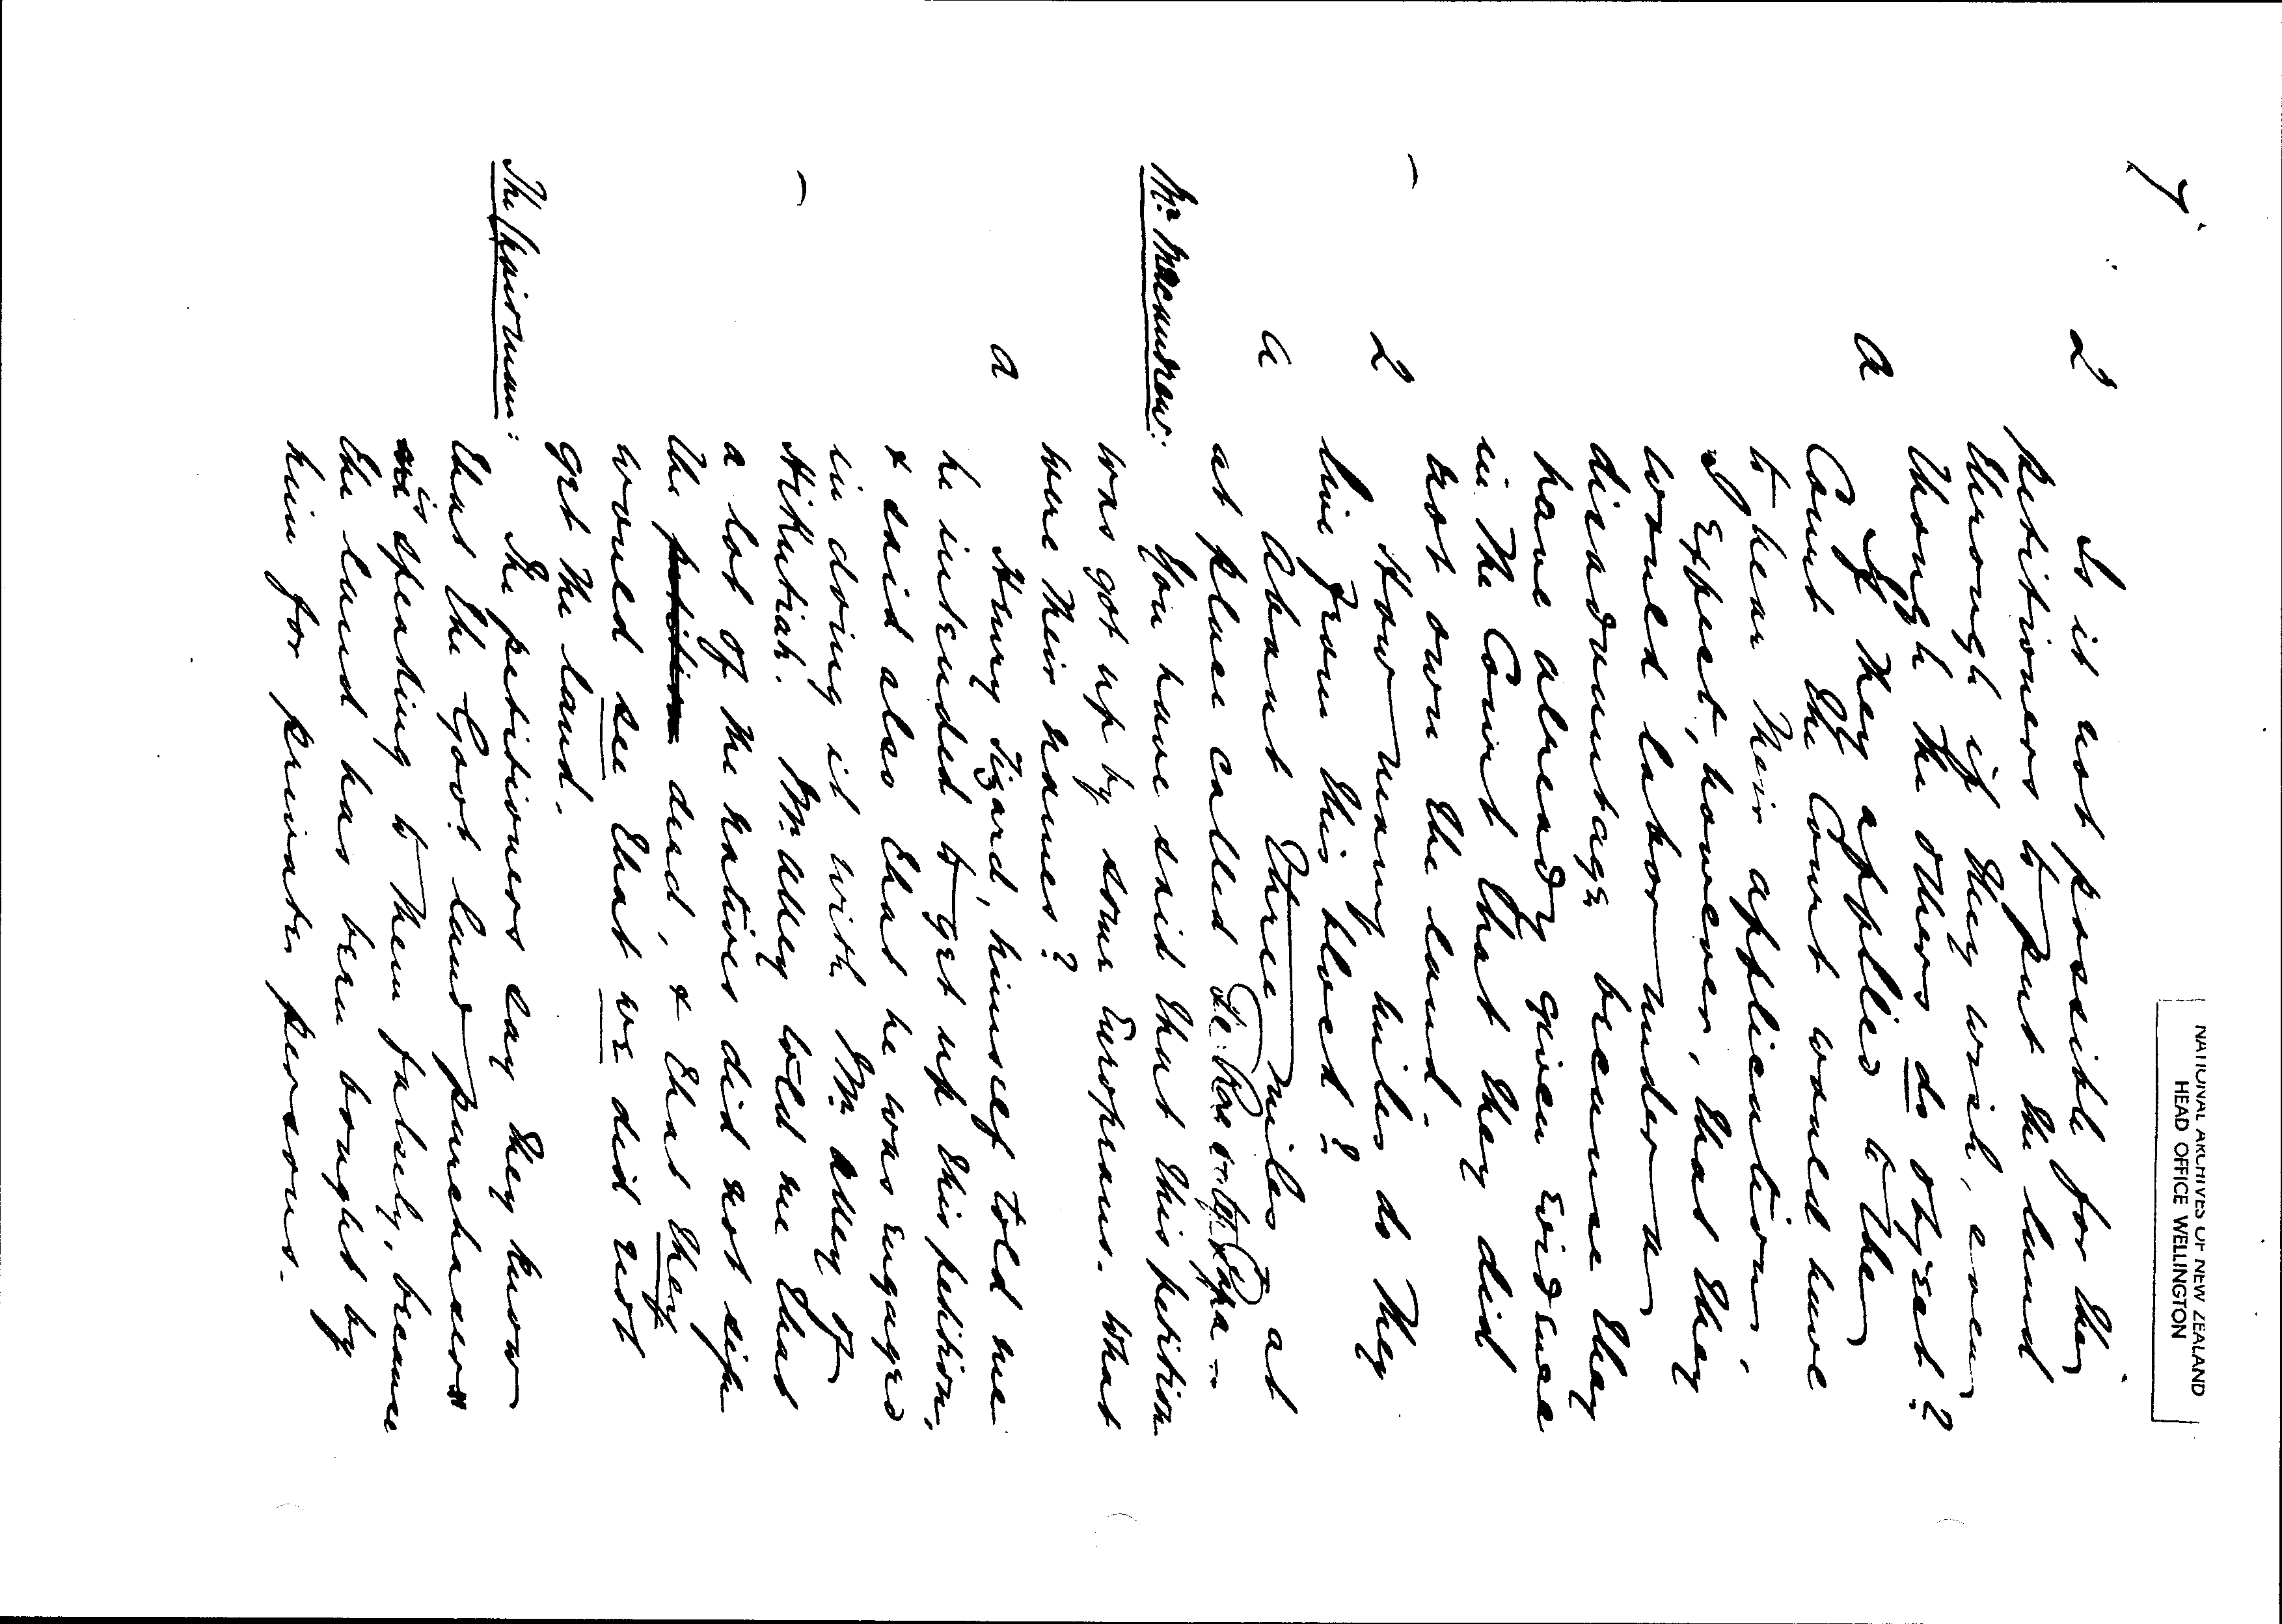 NATIONAL ARCHIVES OF NEW ZEALAND
HEAD OFFICE WELLINGTON
7.
Q Is it not possible for the
petitioners to put the land
through if they wish, even
though the others do object?
A If they applied to the
Court the Court would have
to hear their application,
I expect, however, that they
would labor under a
disadvantage because they
have already given evidence
in the Court that they did
not own the land.
Q How many miles do they
live from this block?
A About three miles at
at place called Te Rae o te Papa
Mr. Macandrew: You have said that this petition
was got up by some Europeans. What
were their names?
A Henry Tizard, himself told me
he intended to get up this petition,
& said also that he was engaged
in doing it with Mr. Alley of
Hikutiah. Mr. Alley told me that
a lot of the natives did not sign
the petition deed, & that they
would see that we did not
get the land.
The Chairman: The petitioners say they know
that the Govt land purchaser
is speaking to them falsely, because
the land has been bought by
him for private persons.